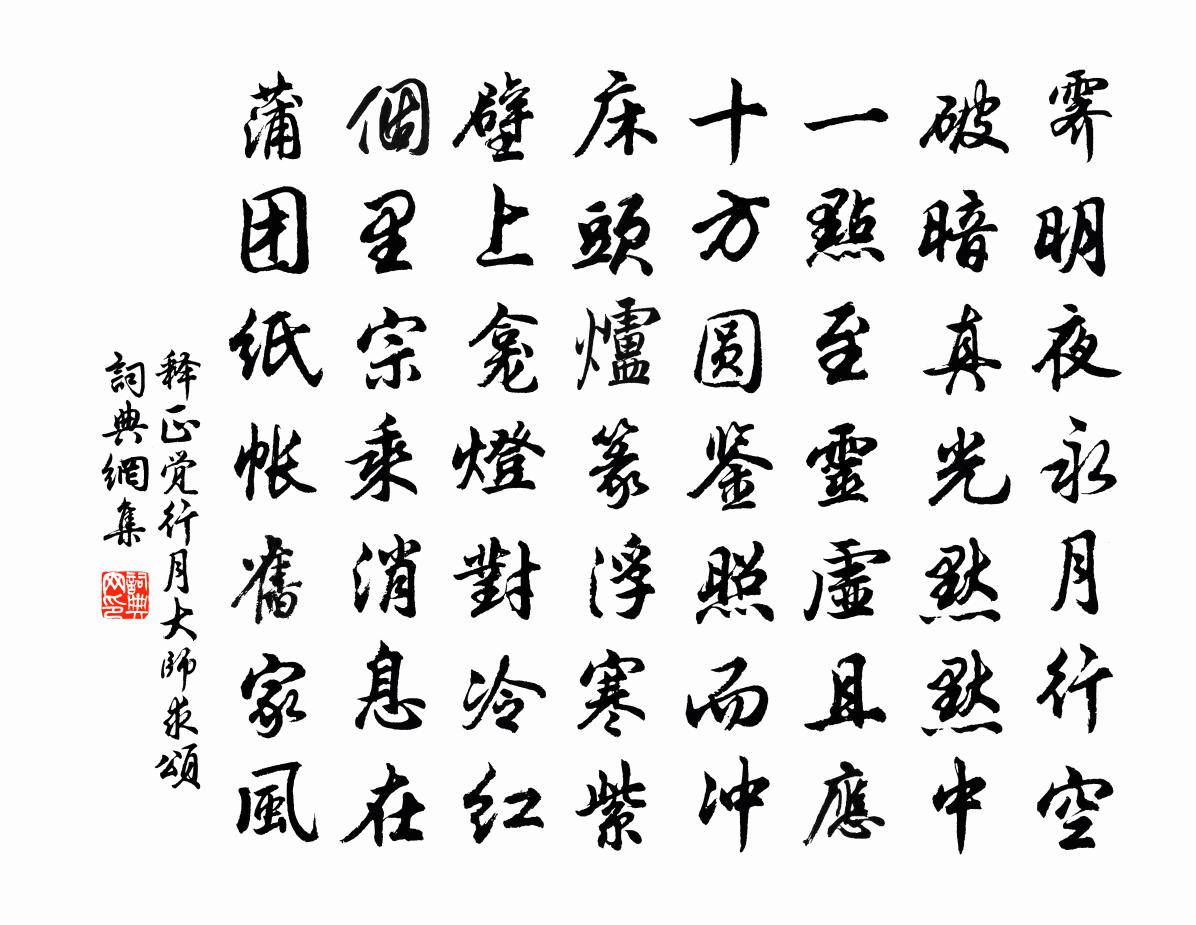 霽明夜永月行空
破暗真光默默中
一點至靈虛且應
十方圓鉴照而冲
床頭爐篆浮寒紫
壁上龛燈對冷红
個里宗乘消息在
蒲团纸帐舊家風
释正觉行月大師求頌
詞典網集
詞典网印